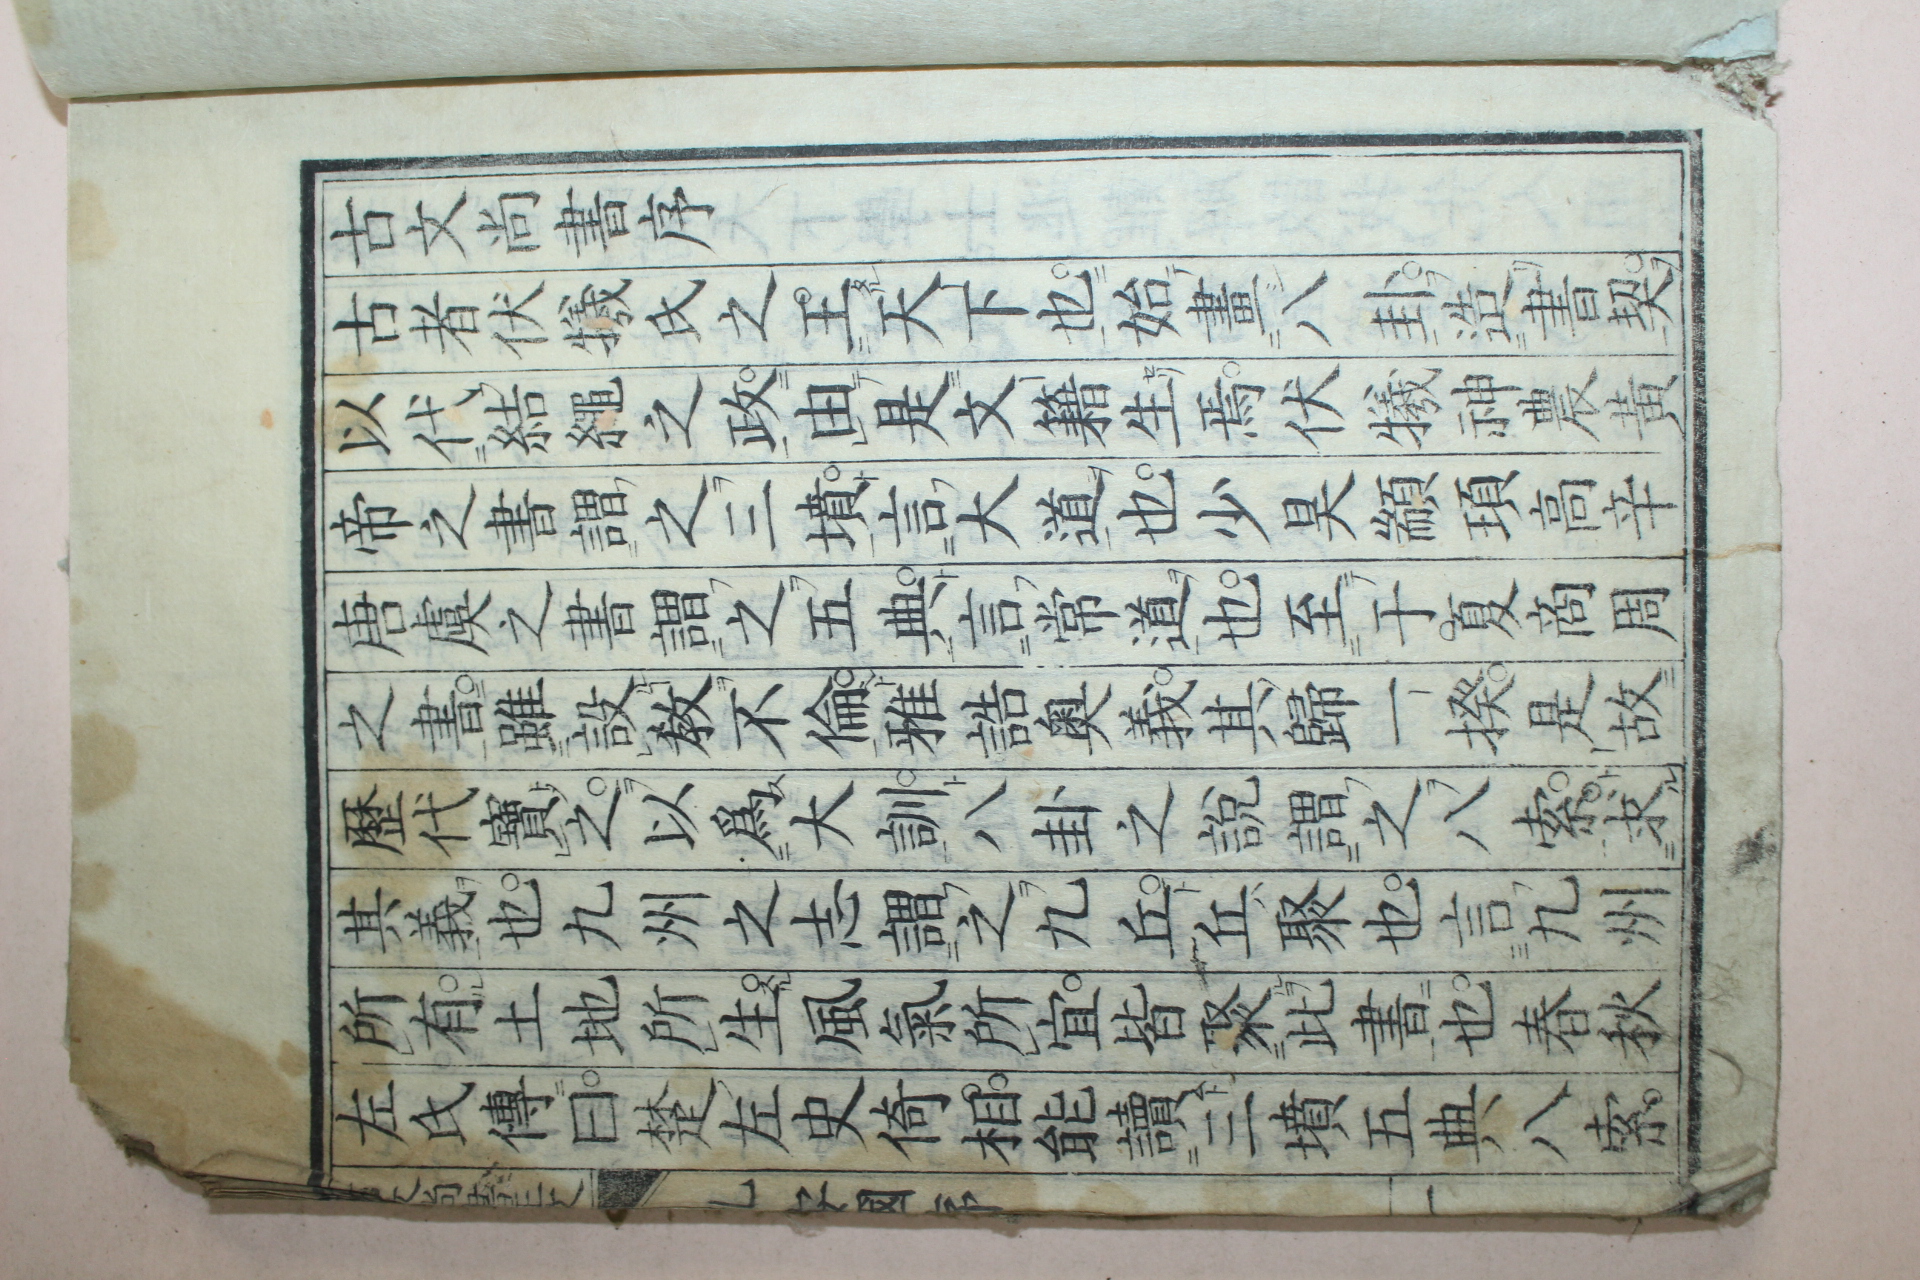 古文尚書序
古者伏犧氏之王天下也始畫八卦造書契
以代結繩之政由是文籍生焉伏犧神農黃
帝之書謂之三墳言大道也少昊顓頊高辛
唐虞之書謂之五典言常道也至于夏商周
之書雖設教不倫雅誥奧義其歸一揆是故
歷代寶之以爲大訓八卦之說謂之八索求
其義也九州之志謂之九丘丘聚也言九州
所有土地所生風氣所宜皆聚此書也春秋
左氏傳曰楚左史倚相能讀三墳五典八索